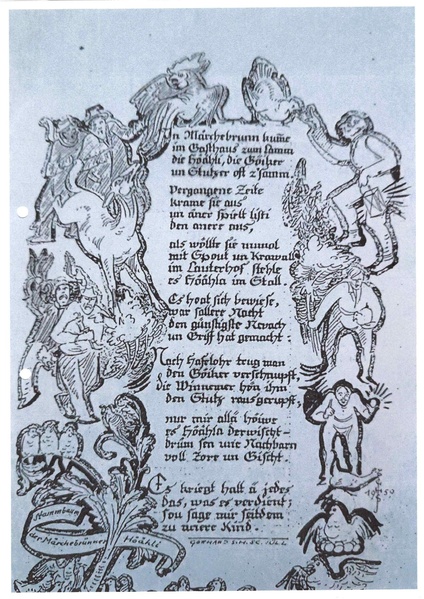 In Märchebrunn kumē
im Gasthaus zum Lamm
die Hööhli, die Göiker
un Stutzer oft z'samm.
Vergangene Zeite
krame sie aus
un äner spielt listi
den anere aus,
als wöllte sie numol
mit Spout un Krawall
im Lauterhof stehle
es Hööhla im Stall.
Es hoat sich bewiese,
war sallere Nacht
den günstigste
un Griff hat gemacht.
Noch Hafelohr trug man
den Göiker verschnupft,
die Winnemer hön ihm
den Stutz rausgerupft,
nur mir allä höwe
es Hööhla derwischt –
drüm sen uni Nachbarn
voll Zore un Gischt.
Es kriegt halt ä jedes
das, was es verdient;
sou sage mir seitdem
zu unere Kind.
Stammbaum
der Märchebrünner
Hööhli
1959